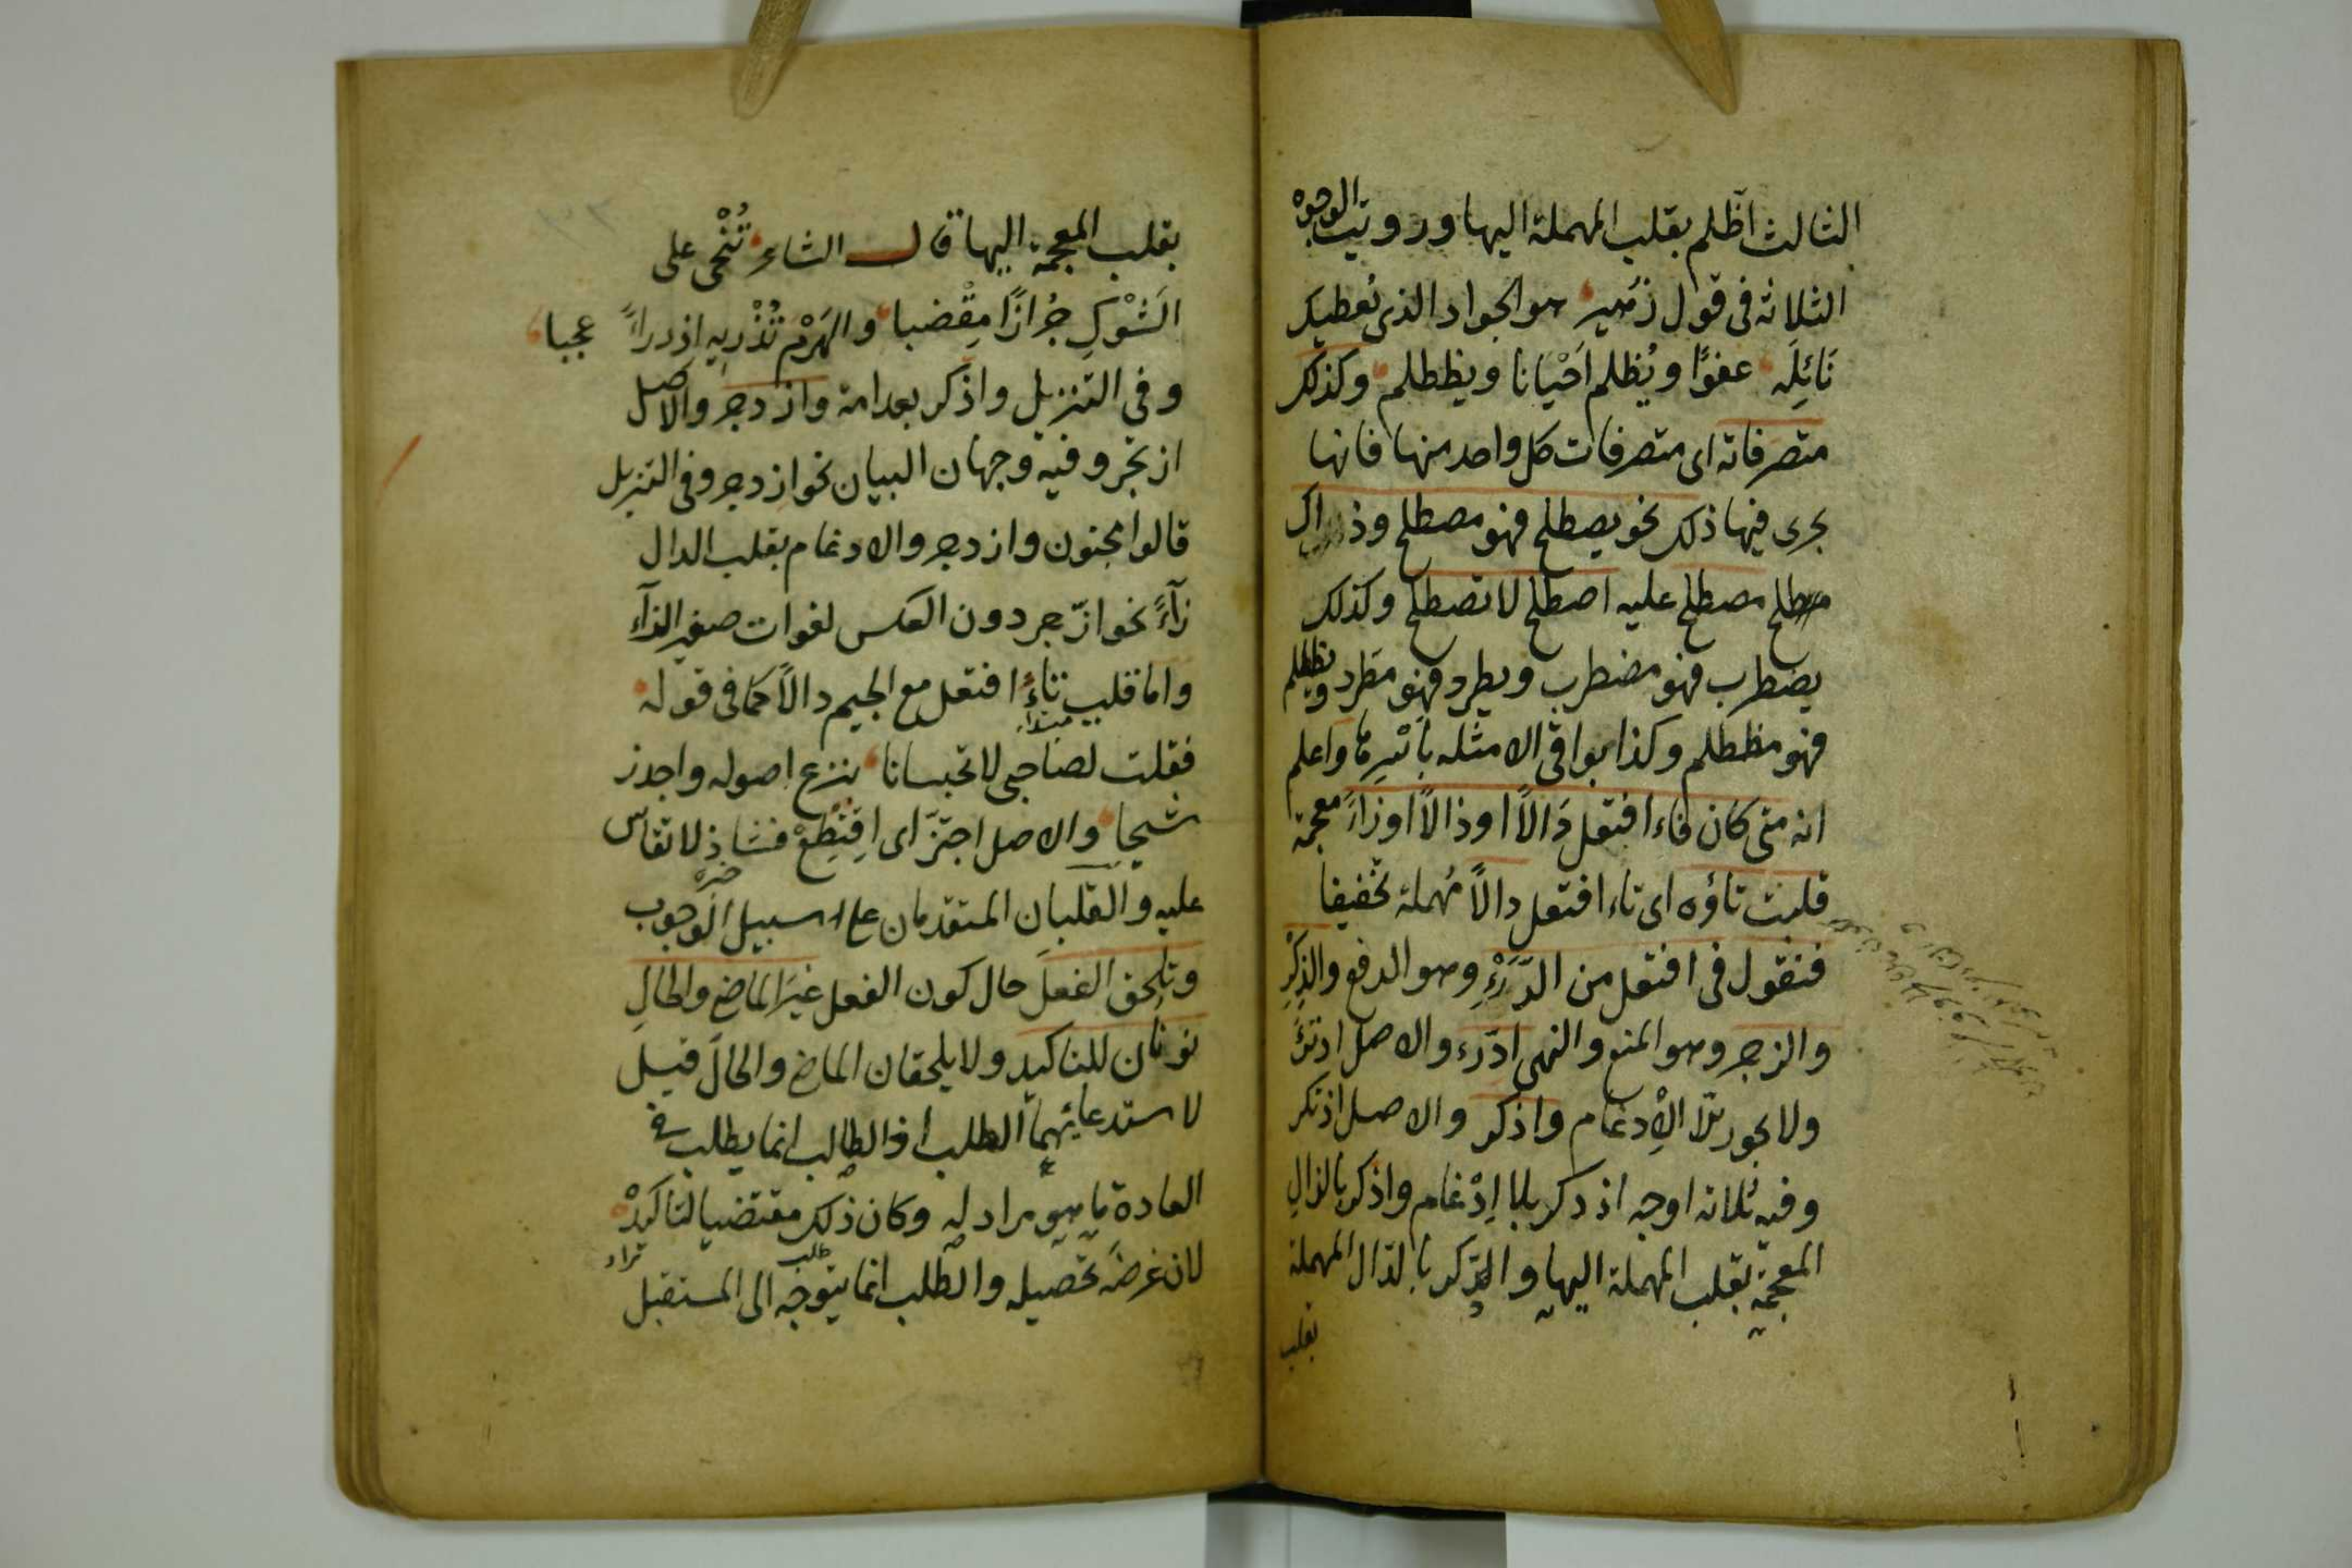 الثالث اظّلم بقلب المهملة اليها ورويت الوجوه
الثلاثة فى قول زهير هو الجواد الذى يُعطيك
نَائِلَه عفوًا ويُظلم اَحْيانا ويظطلم وكذلك
متصرفاته اى متصرفات كل واحد منها فانها
يجرى فيها ذلك نحو يصطلح فهو مصطلح وذاك
مصطلح مصطلح عليه اصطلح لا تصطلح وكذلك
يضطرب فهو مضطرب ويطرد فهو مطّرد ويظطلم
فهو مظطلم وكذا بواقى الامثله بِاَسْرِها واعلم
انه متى كان فاء افتعل دَالاً اوذالاً اوزاءً معجمة
قلبت تاؤه اى تاء افتعل دالاً مُهملة تخفيفا
فنقول فى افتعل من الدَّرْءِ وهو الدفع والذِكْرِ
والزجر وهو المنع والنهى ادّرء والاصل ادترَٔ
ولا يجوز بلا الاِدغام واذكر والاصل اذتكر
وفيه ثلاثة اوجه اذدكر بلا اِدْغام واذّكر بالذالِ
المعجمة بقلب المهملة اليها وادّكر بالدّال المهملة
بقلب
بقلب المعجمة اليها قال الشاعر تُنْحى على
الشَوْكِ جُرَازًا مِقْضبا والهَرْمُ تُذْرِيهِ اذدراءً عجبا
وفى التنزيل واذّكر بعد امة وازدجر والاصل
ازتجر وفيه وجهان البيان نحو ازدجر وفى التنزيل
قالوا مجنون وازدجر والادغام بقلب الدال
زآءً نحو ازّجر دون العكس لفوات صفير الزاء
واما قلب تاءِ افتعل مع الجيم دالاً كما فى قوله
مبتداء
فقلت لصاحبى لا تحبسانا بنزع اصوله واجدز
شيحا والاصل اجتزّ اى اِقْتَطِعْ فشاذ لا تقاس
خبره
عليه والقلبان المتقدمان على سبيل الوجوب
وتلحق الفعلَ حال كون الفعل غيَر الماضى والحالِ
نونان للتاكيد ولا يلحقان الماضى والحالَ قيل
لاستدعائهما الطلب اذ الطالب انما يطلب فى
العادة ما هو مراد له وكان ذلك مقتضيا لتاكيدْ
لان غرضَه تحصيله والطّلب انما يتوجه الى المستقبل
طلب